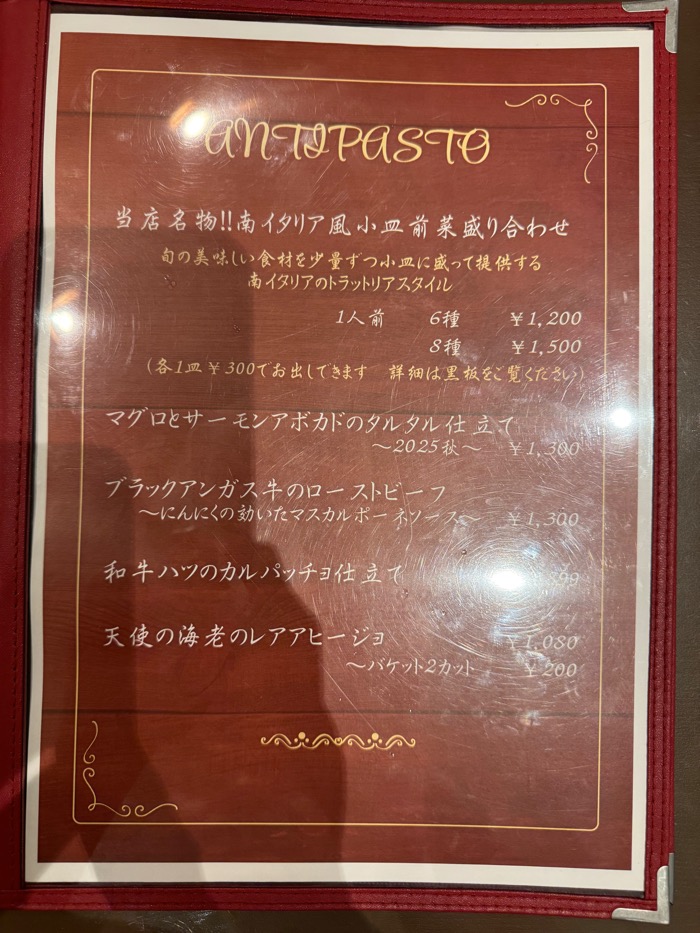 ANTIPASTO
当店名物!!南イタリア風小皿前菜盛り合わせ
旬の美味しい食材を少量ずつ小皿に盛って提供する
南イタリアのトラットリアスタイル
1人前 6種 ￥1,200
8種 ￥1,500
(各1皿￥300でお出しできます 詳細は黒板をご覧ください)
マグロとサーモンアボカドのタルタル仕立て
～2025秋～ ￥1,300
ブラックアンガス牛のローストビーフ
～にんにくの効いたマスカルポーネソース～ ￥1,300
和牛ハツのカルパッチョ仕立て
天使の海老のレアアヒージョ ￥1,080
～バケット2カット ￥200